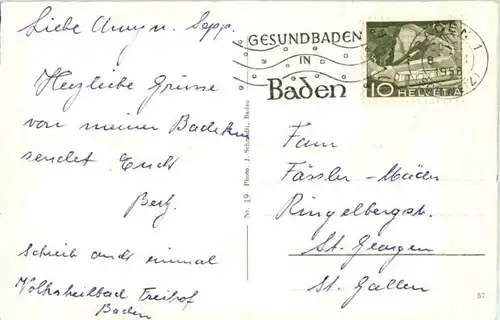 Liebe Anny u. Sepp.
Herzliche Grüsse
von meiner Badekur
sendet Euch
Berty.
Schreib auch einmal
Volksheilbad Freihof
Baden
Nr. 19 Photo: J. Schmidt, Baden
GESUNDBADEN
IN
Baden
BADEN
1958
1
10 HELVETIA
Fam
Fässler-Mäder
Ringelbergstr.
St. Georgen
St. Gallen
57